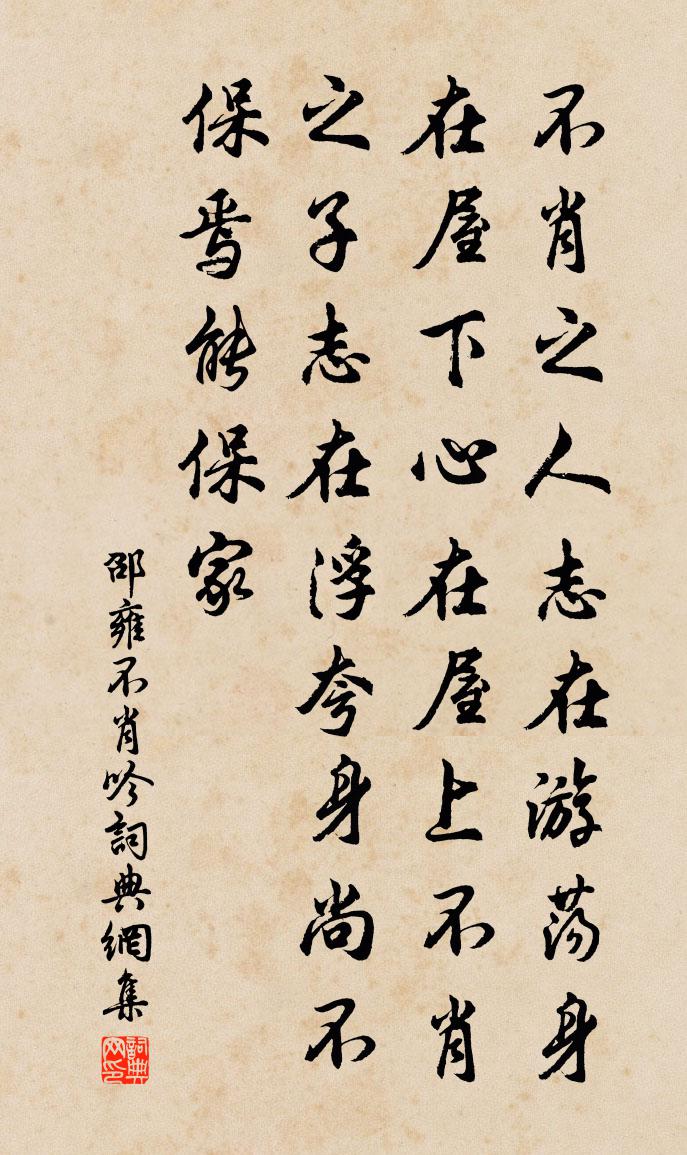 不肖之人志在游荡身
在屋下心在屋上不肖
之子志在浮夸身尚不
保焉能保家
邵雍不肖吟詞典網集
詞典网印